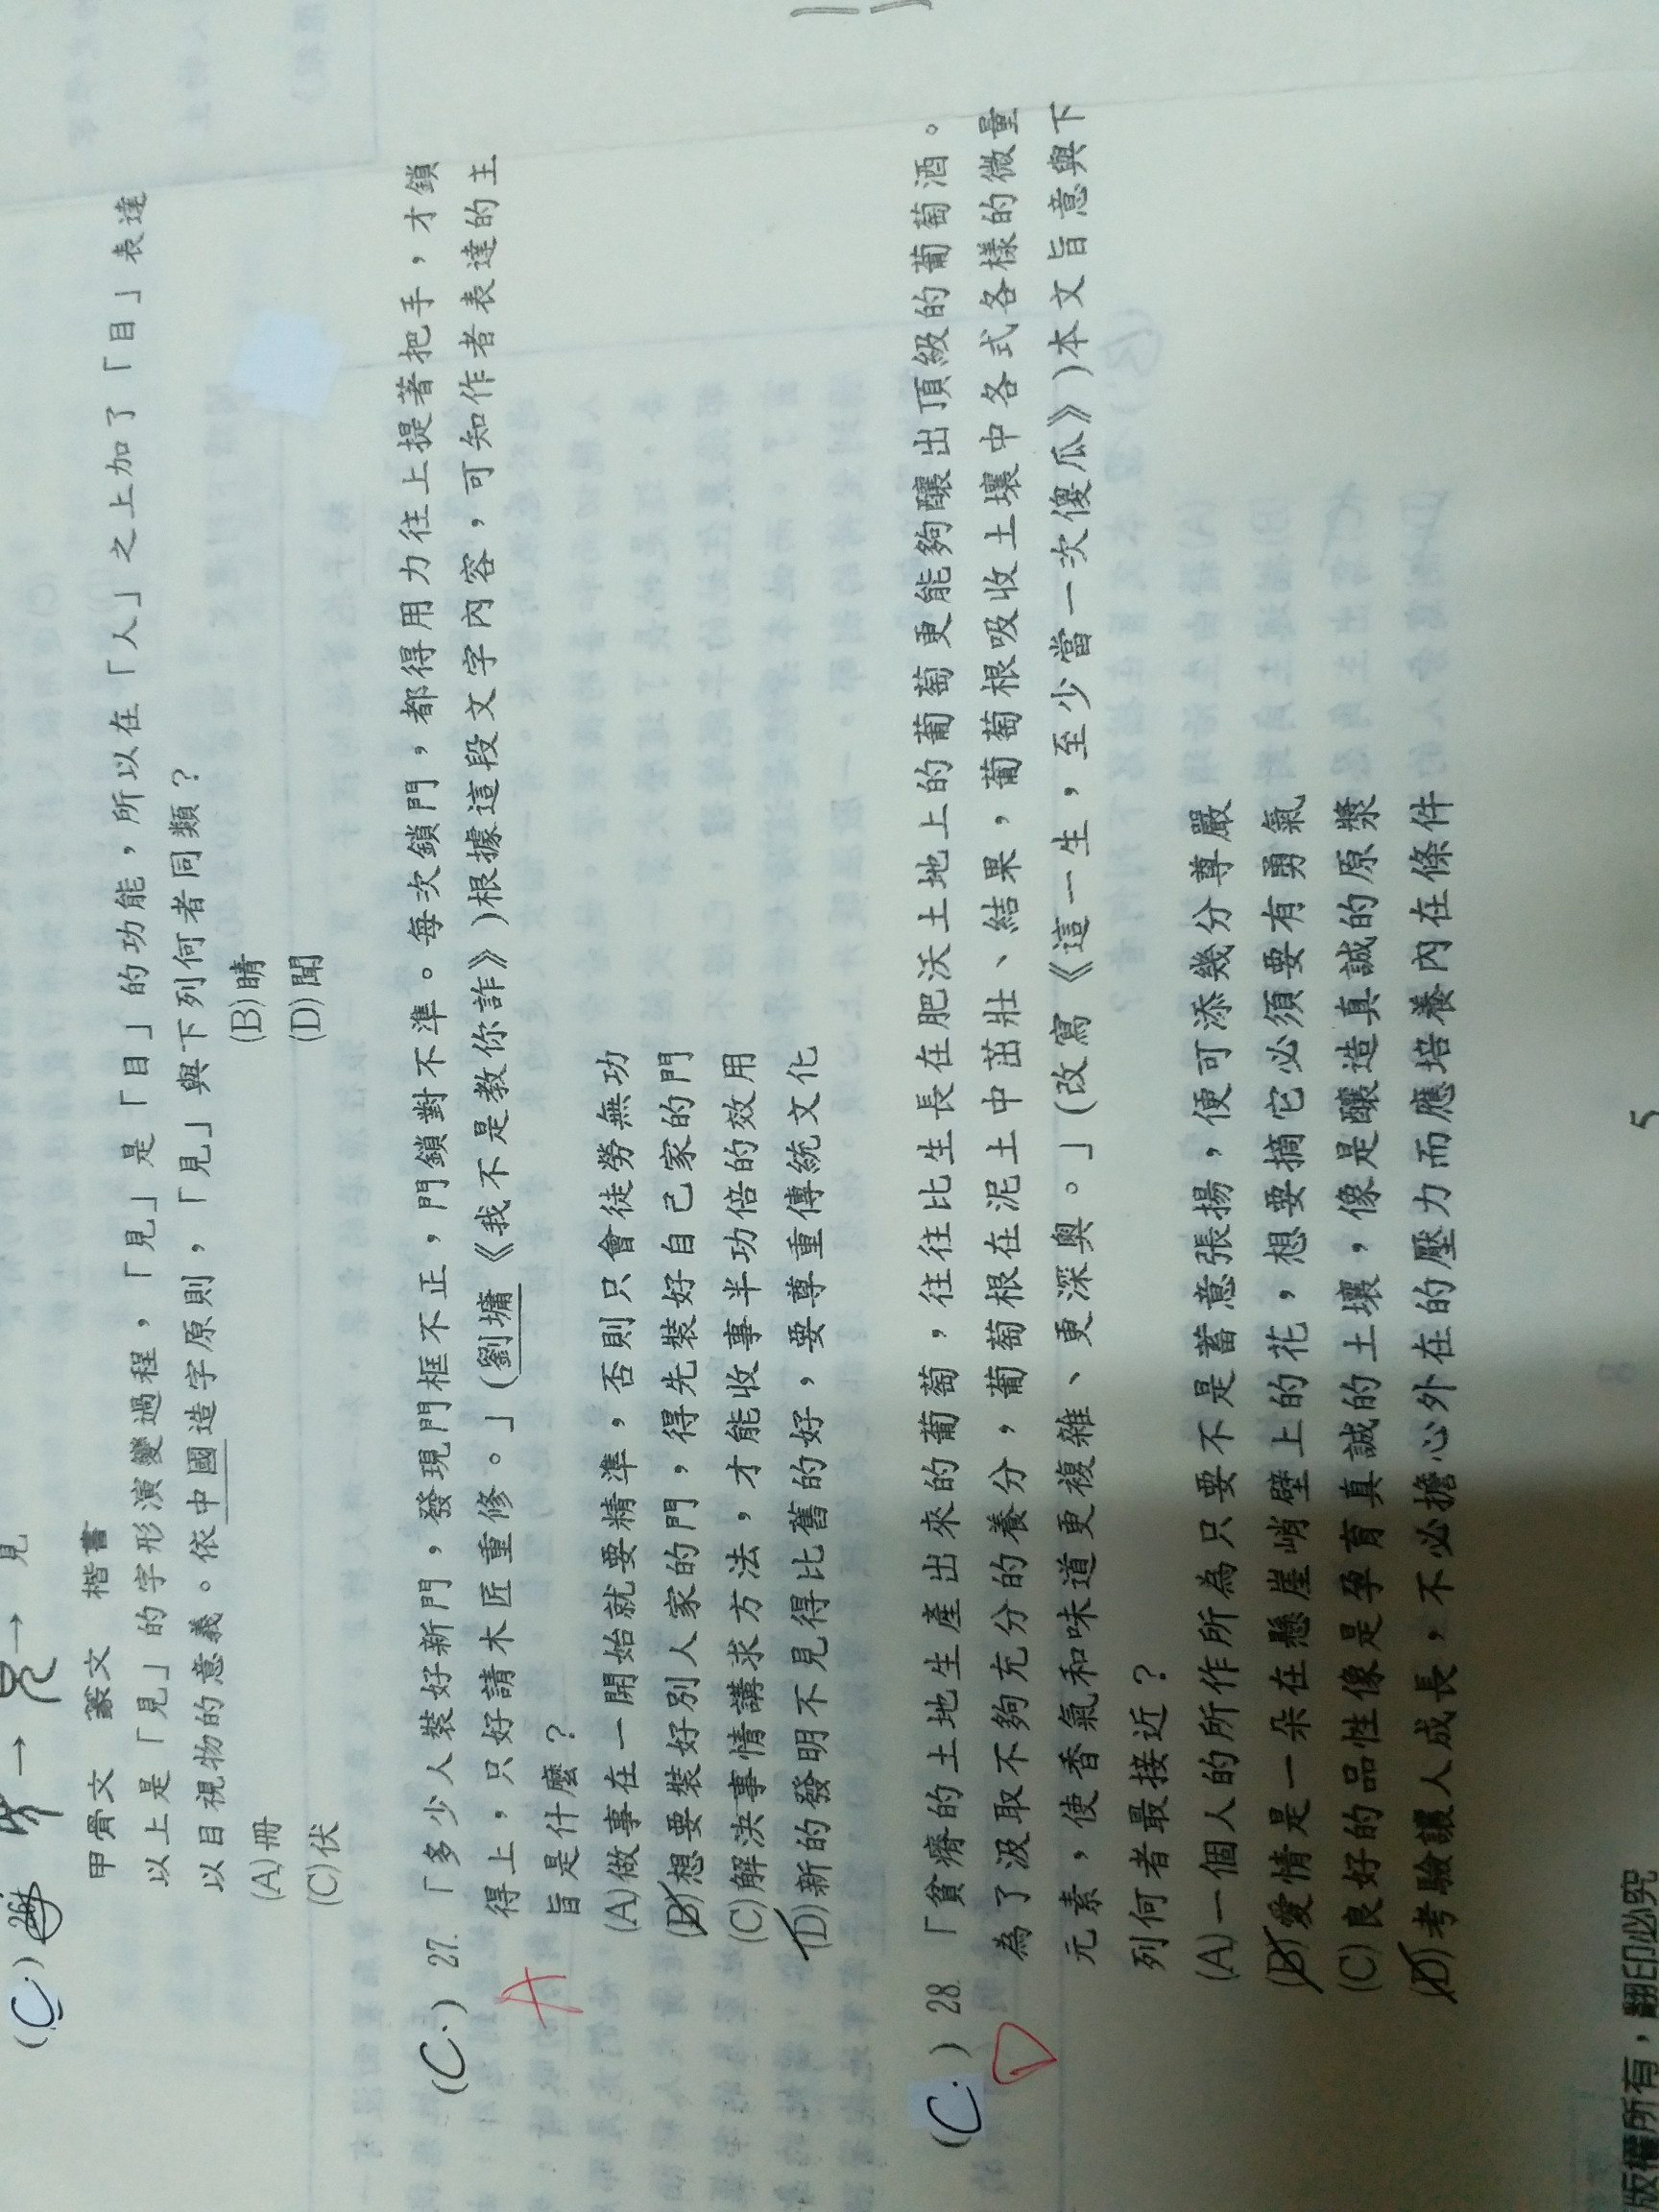 見
甲骨文 篆文 楷書
(C) 26. 以上是「見」的字形演變過程，「見」是「目」的功能，所以在「人」之上加了「目」表達
以目視物的意義。依中國造字原則，「見」與下列何者同類？
(A)冊 (B)睛
(C)伏 (D)聞
(C.) 27. 「多少人裝好新門，發現門框不正，門鎖對不準。每次鎖門，都得用力往上提著把手，才鎖
A 得上，只好請木匠重修。」(劉墉《我不是教你詐》)根據這段文字內容，可知作者表達的主
旨是什麼？
(A)做事在一開始就要精準，否則只會徒勞無功
(B)想要裝好別人家的門，得先裝好自己家的門
(C)解決事情講求方法，才能收事半功倍的效用
(D)新的發明不見得比舊的好，要尊重傳統文化
(C.) 28. 「貧瘠的土地生產出來的葡萄，往往比生長在肥沃土地上的葡萄更能夠釀出頂級的葡萄酒。
D 為了汲取不夠充分的養分，葡萄根在泥土中茁壯、結果，葡萄根吸收土壤中各式各樣的微量
元素，使香氣和味道更複雜、更深奧。」(改寫《這一生，至少當一次傻瓜》)本文旨意與下
列何者最接近？
(A)一個人的所作所為只要不是蓄意張揚，便可添幾分尊嚴
(B)愛情是一朵在懸崖峭壁上的花，想要摘它必須要有勇氣
(C)良好的品性像是孕育真誠的土壤，像是釀造真誠的原漿
(D)考驗讓人成長，不必擔心外在的壓力而應培養內在條件
版權所有，翻印必究
5